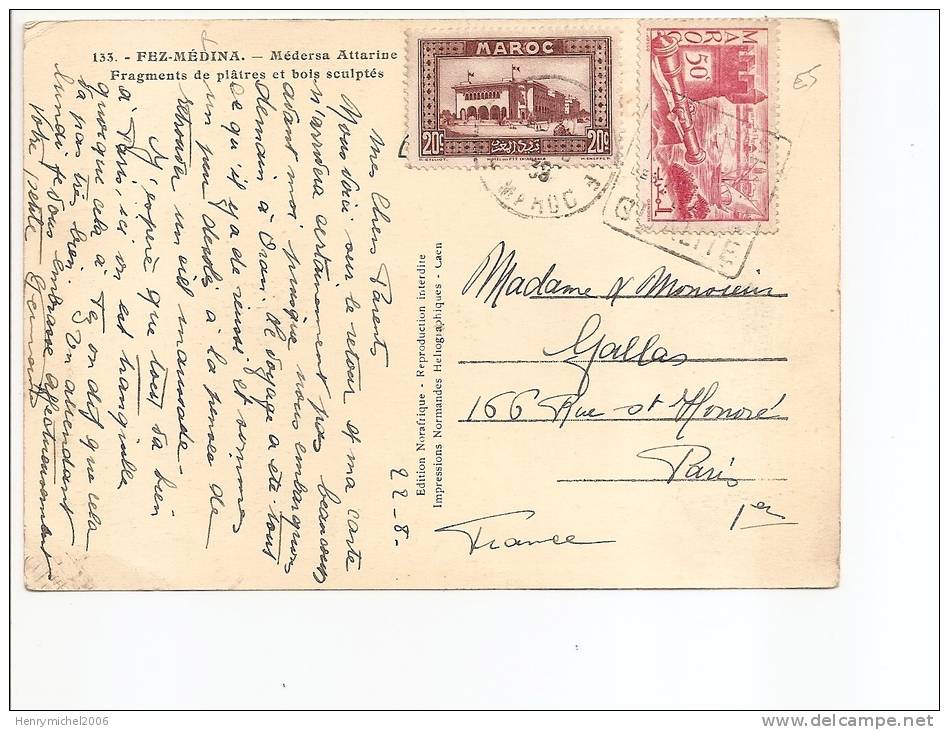 133. - FEZ-MÉDINA. — Médersa Attarine
Fragments de plâtres et bois sculptés
MAROC
20c 20c
MAROC
50c
MAROC
Mes Chers Parents
Nous voici sur le retour et ma carte
n'arrivera certainement pas beaucoup
avant moi puisque nous embarquons
demain à Oran. Le voyage a été tout
ce qu'il y a de réussi et sommes
un peu désolé à la pensée de
retrouver un ciel maussade -
J'espère que tout va bien
à Paris, ici on est tranquille
quoique cela à Fez on dit que cela
va pas très bien. En attendant
lundi je vous embrasse affectueusement
Votre petite Germaine
22-8-
Edition Norafrique - Reproduction interdite
Impressions Normandes Heliographiques - Caen
Madame & Monsieur
Gallas
166 Rue St Honoré
Paris
1er
France
ES
Henrymichel2006
delcampe.net